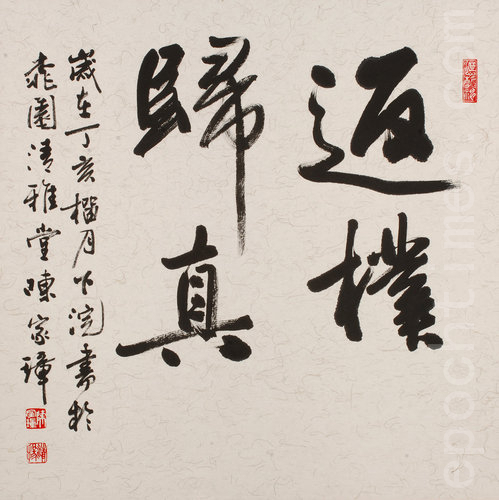 返樸
歸真
歲在丁亥榴月下浣書於
桃園清雅堂陳家璋
epochtimes.com